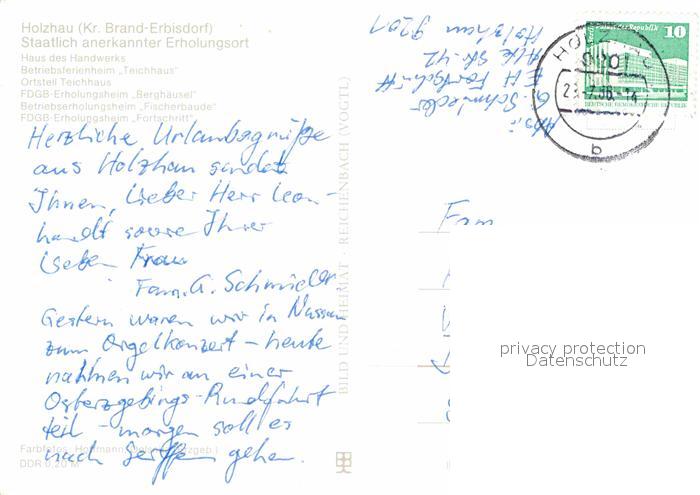 Holzhau (Kr. Brand-Erbisdorf)
Staatlich anerkannter Erholungsort
Haus des Handwerks
Betriebsferienheim „Teichhaus“
Ortsteil Teichhaus
FDGB-Erholungsheim „Berghäusel“
Betriebserholungsheim „Fischerbaude“
FDGB-Erholungsheim „Fortschritt“
Herzliche Urlaubsgrüße
aus Holzhau sendet
Ihnen, lieber Herr Leon-
hardt sowie Ihrer
lieben Frau
Fam. G. Schmieder
Gestern waren wir in Nassau
zum Orgelkonzert – heute
nahmen wir an einer
Osterzgebirgs-Rundfahrt
teil – morgen soll es
nach Seiffen gehen.
Farbfotos: Hoffmann
DDR 0,20 M
BILD UND HEIMAT · REICHENBACH (VOGTL)
Abs.:
G. Schmieder
EH Fortschritt
Alte Str. 42
Holzhau 9201
10
DEUTSCHE DEMOKRATISCHE
HOLZ
b
Fam
privacy protection
Datenschutz